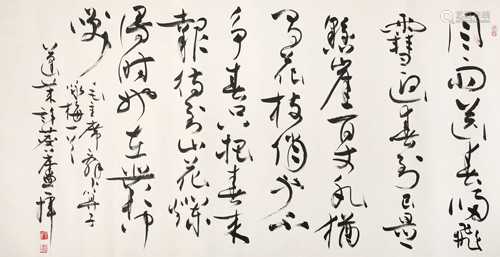 風雨送春歸飛
雪迎春到已是
懸崖百丈冰猶
有花枝俏也不
爭春只把春來
報待到山花爛
漫時她在叢中
笑
毛主席詞卜算子
咏梅一首
蓬萊